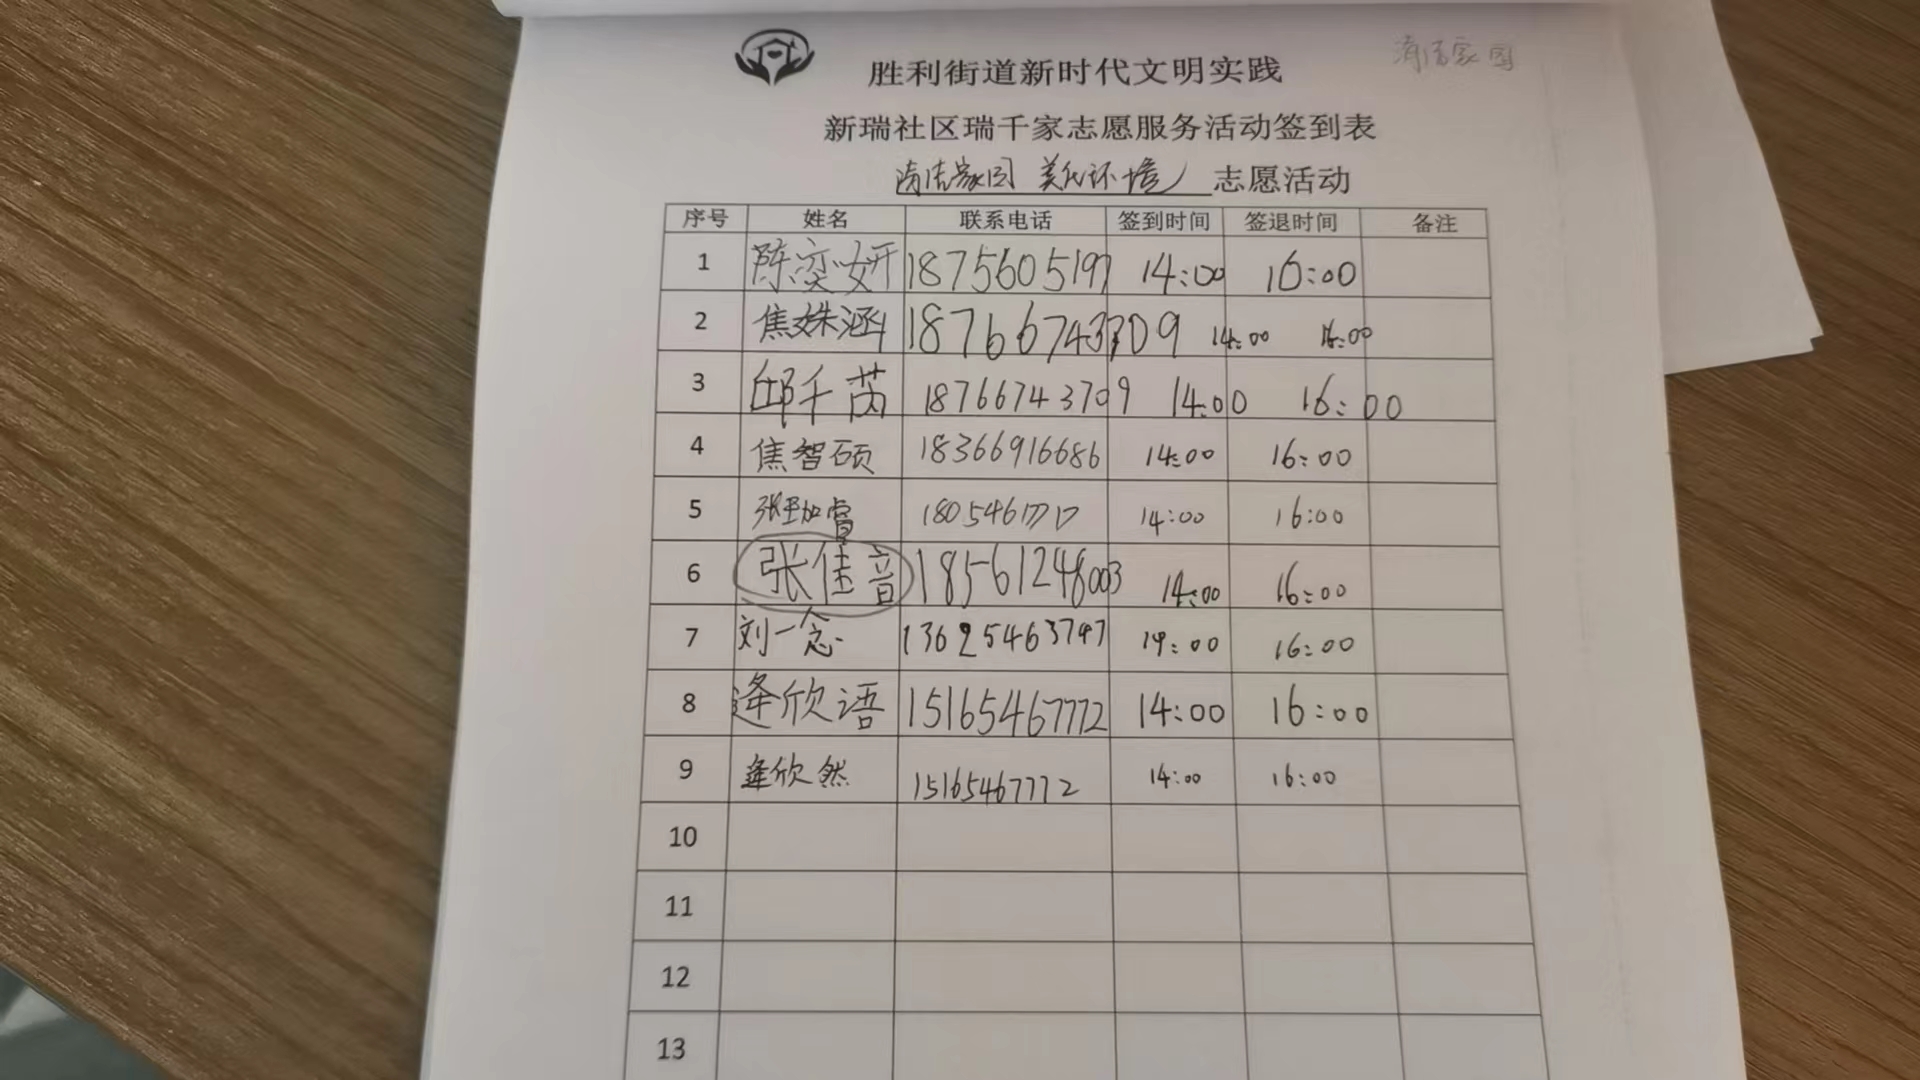 清洁家园
胜利街道新时代文明实践
新瑞社区瑞千家志愿服务活动签到表
清洁家园 美化环境 志愿活动
序号 姓名 联系电话 签到时间 签退时间 备注
1 陈奕妍 1875605197 14:00 16:00
2 焦姝涵 18766743709 14:00 16:00
3 邱千芮 18766743709 14:00 16:00
4 焦智硕 18366916686 14:00 16:00
5 14:00 16:00
6 张佳音 18561248003 14:00 16:00
7 刘一念 13625463747 14:00 16:00
8 逄欣语 15165467772 14:00 16:00
9 逄欣然 15165467772 14:00 16:00
10
11
12
13